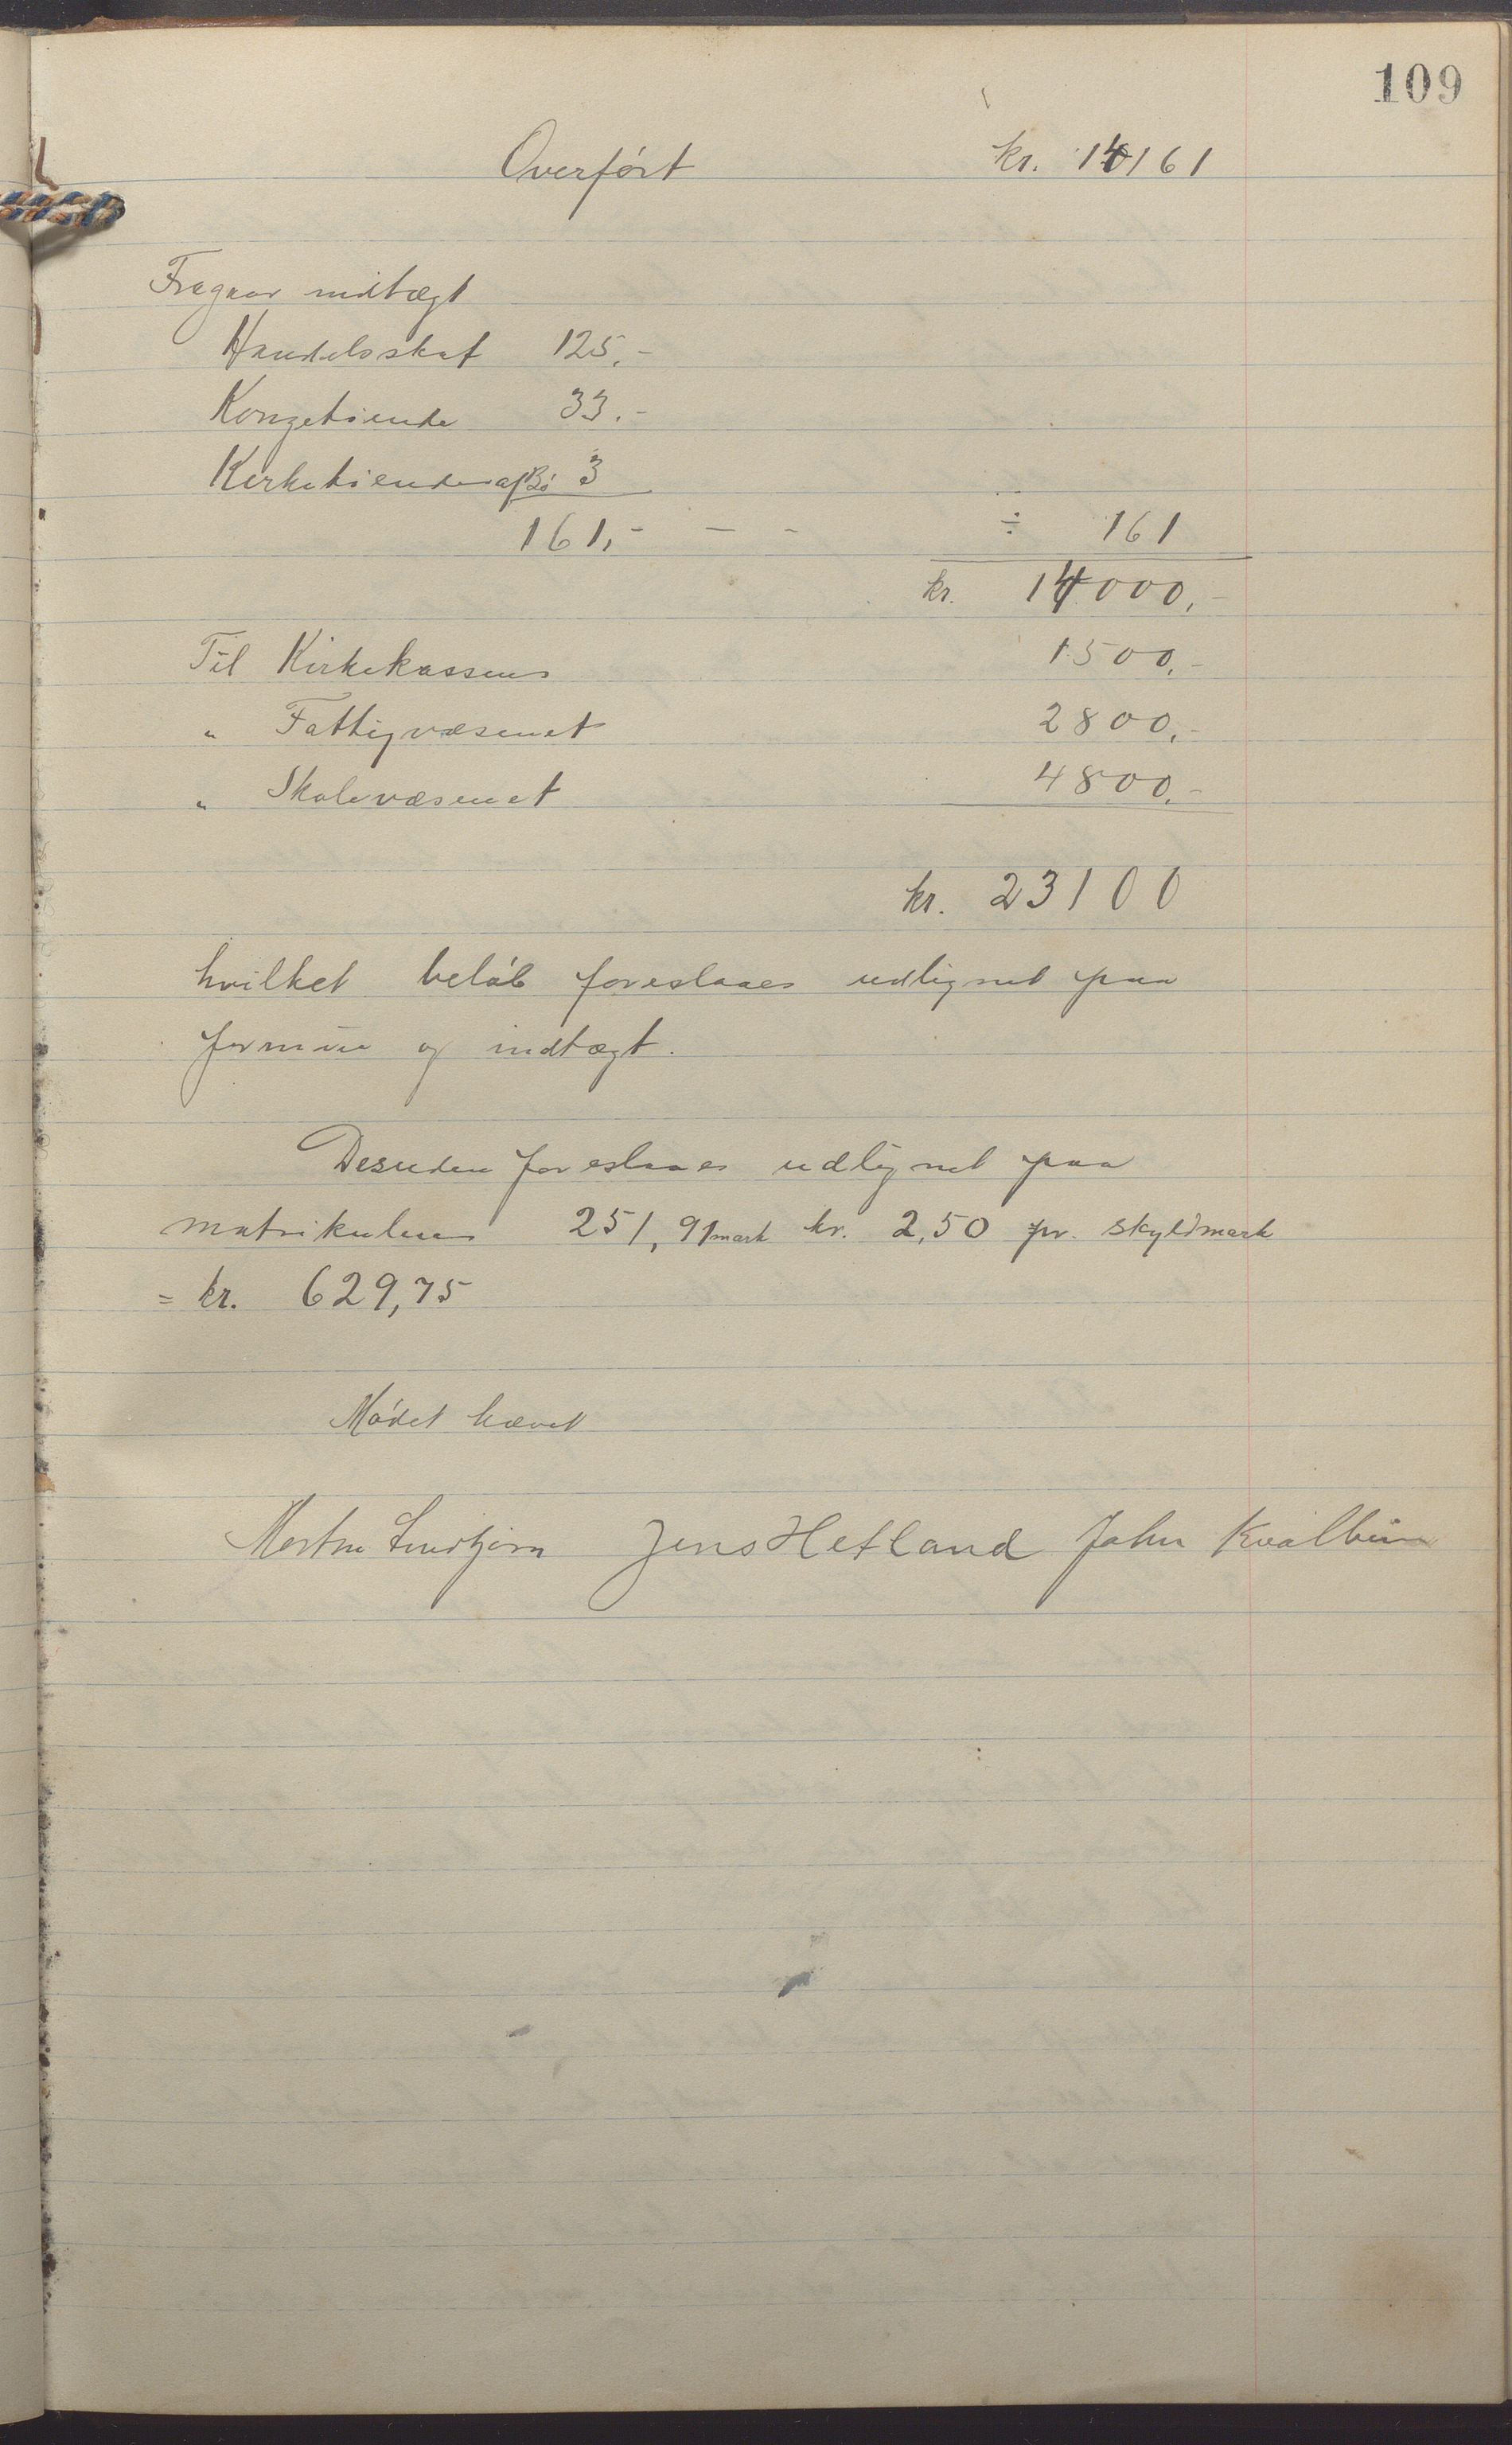 109
Overført kr. 14161
Fragaar indtægt
Handelsskat 125.-
Kongetiende 33.-
Kirketienden af Bø 3
161,- - - ÷ 161
kr. 14000,-
Til Kirkekassen 1500,-
" Fattigvæsenet 2800,-
" Skolevæsenet 4800,-
kr. 23100
hvilket beløb foreslaaes udlignet paa
formue og indtægt.
Desuden foreslaaes udlignet paa
matrikulen 251,91 mark kr. 2,50 pr. skyldmark
= kr. 629,75
Mødet hævet
Jens Hetland John Kvalbein